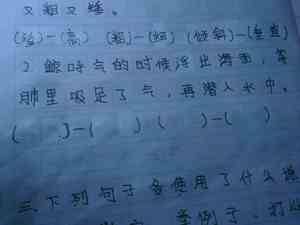 又粗又矮。
( )-(高) (粗)-(细) (倾斜)-(垂直)
2 鲸呼气的时候浮出海面,等
肺里吸足了气,再潜入水中。
( )-( ) ( )-( )
三、下列句子各使用了什么说
举例子、打